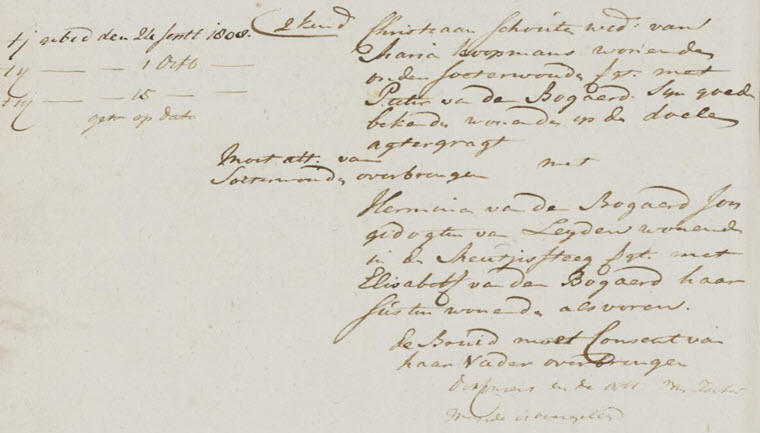 tj gebod den 24 septt 1808.
tij — — 1 Octo —
tiij — — 15 — —
getr op dato
2 kend
Christiaan Schouten wed: van
Maria Koopmans wonende
onder Soeterwoude fgt. met
Pieter van de Bogaerd zijn goede
bekende wonende op de doele
agtergragt
Moet att: van
Soeterwoude overbrengen
met
Hermina van de Bogaerd Jon
gedogter van Leyden wonende
in de steeg fgt. met
Elisabeth van den Bogaerd haar
suster wonende als voren.
de Bruid moet Consent van
haar Vader overbrengen
en de att: van